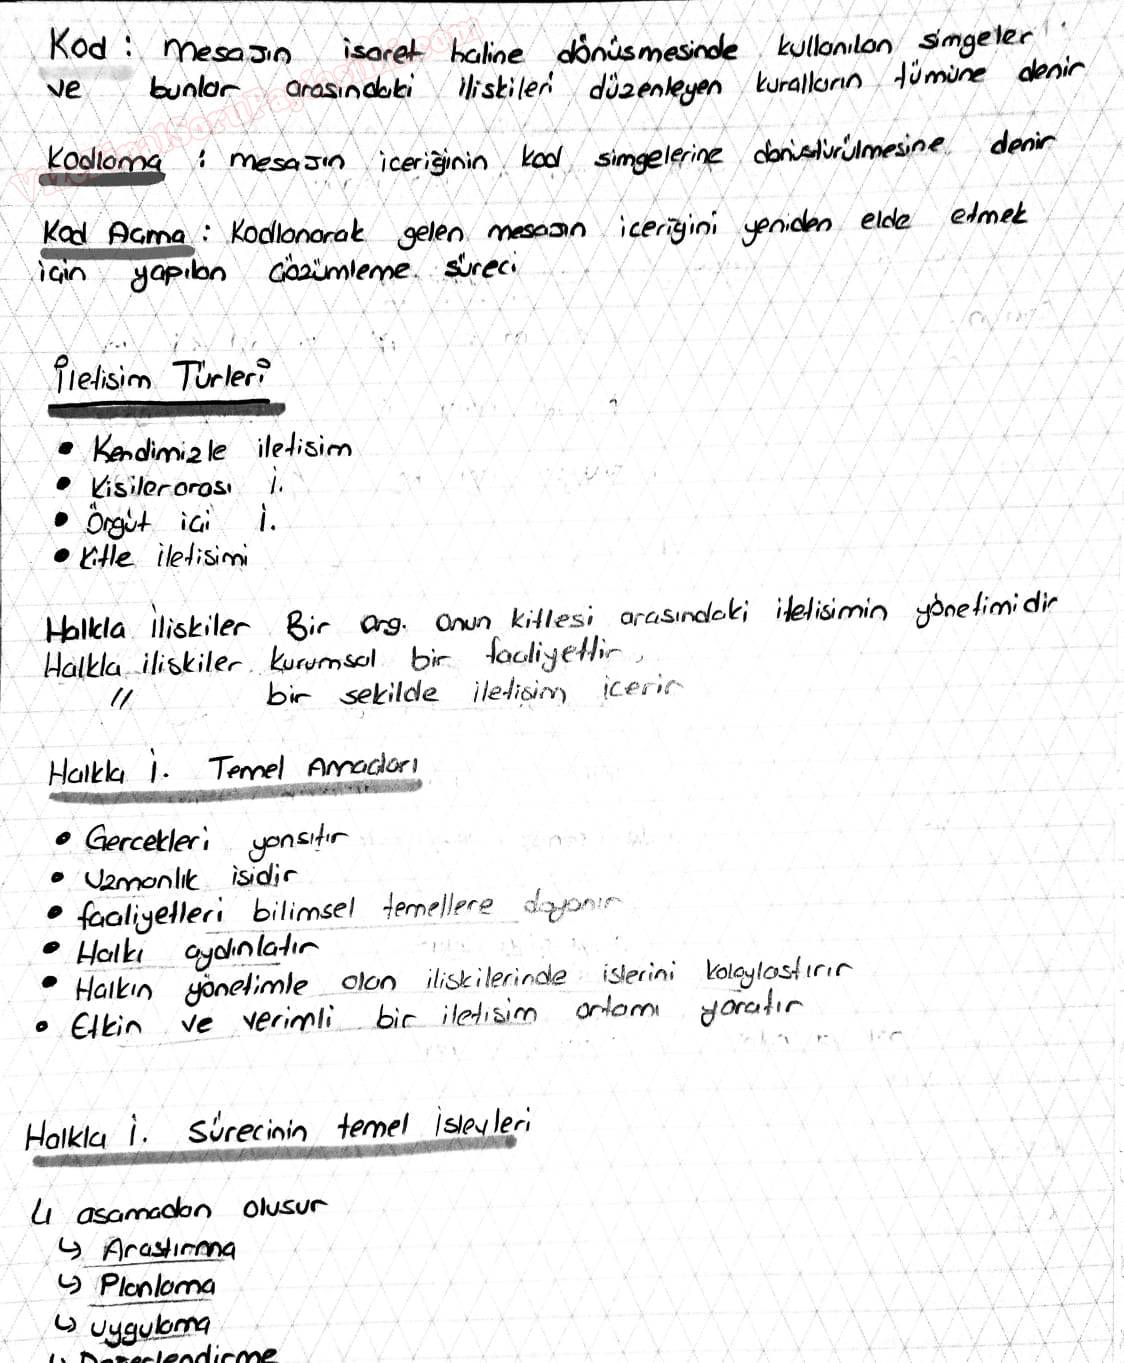 Kod : mesajın isaret haline dönüsmesinde kullanılan simgeler
ve bunlar arasındaki iliskileri düzenleyen kuralların tümüne denir
Kodlama : mesajın iceriğinin kod simgelerine dönüstürülmesine denir
Kod Acma : Kodlanarak gelen mesajın iceriğini yeniden elde etmek
için yapılan çözümleme süreci
İletisim Türleri
• Kendimizle iletisim
• Kisilerarası i.
• Örgüt ici i.
• Kitle iletisimi
Halkla iliskiler Bir org. onun kitlesi arasındaki iletisimin yönetimidir
Halkla iliskiler kurumsal bir faaliyettir,
" bir sekilde iletisim icerir
Halkla İ. Temel Amacları
• Gercekleri yansıtır
• Uzmanlık isidir
• faaliyetleri bilimsel temellere dayanır
• Halkı aydınlatır
• Halkın yönetimle olan iliskilerinde islerini kolaylastırır
• Etkin ve verimli bir iletisim ortamı yaratır
Halkla İ. Sürecinin temel İsleyleri
4 asamadan olusur
↳ Arastırma
↳ Planlama
↳ Uygulama
↳ Degerlendirme